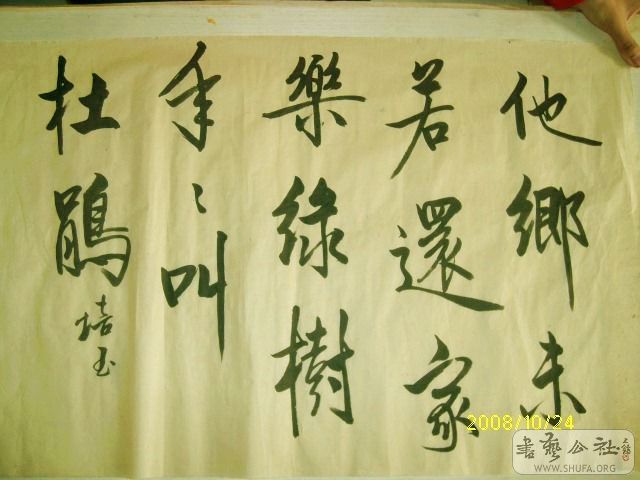 他鄉未
若還家
樂綠樹
年〻叫
杜鵑
培玉
2008/10/24
書藝公社
WWW.SHUFA.ORG